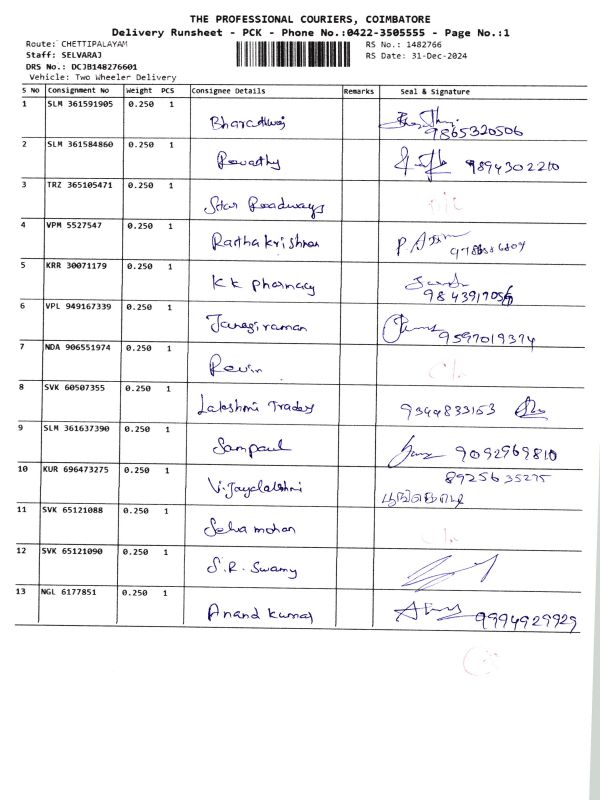 THE PROFESSIONAL COURIERS, COIMBATORE
Delivery Runsheet - PCK - Phone No.:0422-3505555 - Page No.:1
Route: CHETTIPALAYAM RS No.: 1482766
Staff: SELVARAJ RS Date: 31-Dec-2024
DRS No.: DCJB148276601
Vehicle: Two Wheeler Delivery
S No Consignment No Weight PCS Consignee Details Remarks Seal & Signature
1 SLM 361591905 0.250 1
Bharathwaj 9865320506
2 SLM 361584860 0.250 1
Revathy 9894302210
3 TRZ 365105471 0.250 1
Star Roadways
4 VPM 5527547 0.250 1
Radha krishnan
5 KRR 30071179 0.250 1
KK pharmacy
6 VPL 949167339 0.250 1
Janagiraman 9597019374
7 NDA 906551974 0.250 1
Revin
8 SVK 60507355 0.250 1
Lakshmi Traders 9344833153
9 SLM 361637390 0.250 1
Sampaul 9092969810
10 KUR 696473275 0.250 1 8925635275
Vijayalakshmi
11 SVK 65121088 0.250 1
Selva mohan
12 SVK 65121090 0.250 1
S.R. Swamy
13 NGL 6177851 0.250 1
Anand kumar 9994929929